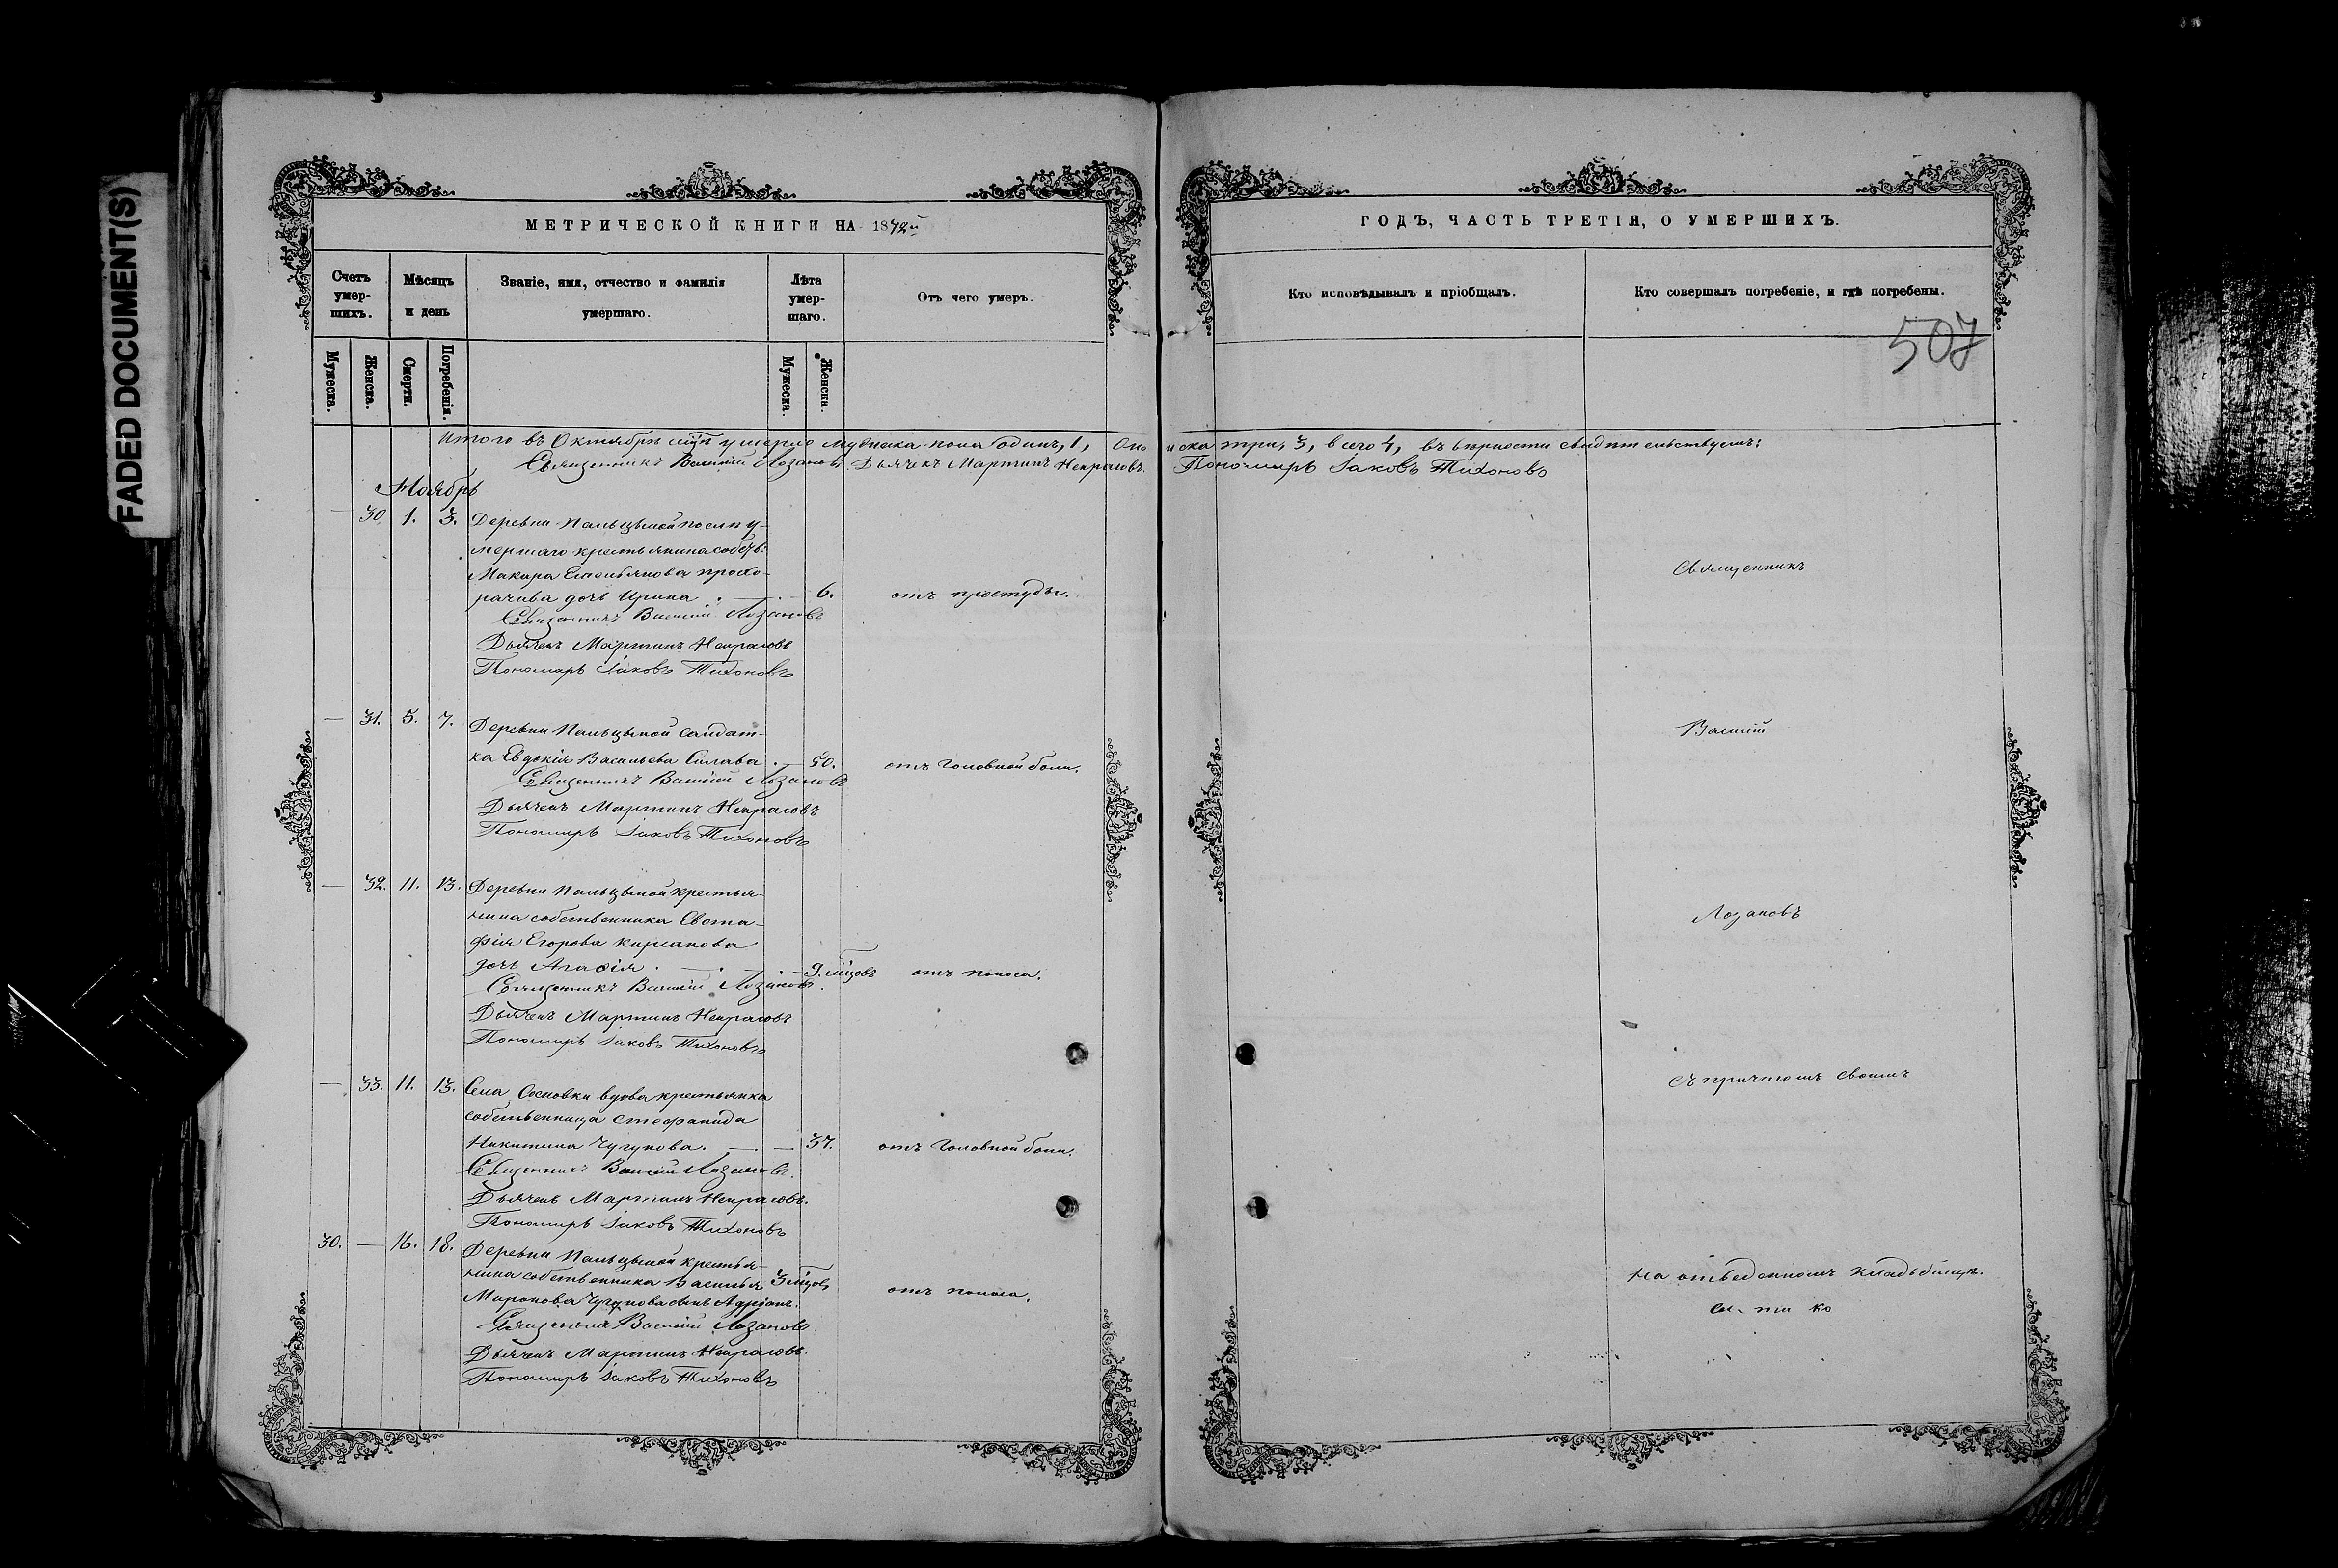 FADED DOCUMENT(S)
МЕТРИЧЕСКОЙ КНИГИ НА 1872й
Счетъ умер-шихъ.
Мѣсяцъ и день
Званіе, имя, отчество и фамилія умершаго.
Лѣта умер-шаго.
Отъ чего умеръ.
Мужеска.
Женска.
Смерти.
Погребенія.
Мужеска.
Женска.
Итого въ Октябрѣ умерло мужеска пола одинъ, 1,
Священникъ Василій Лозановъ. Дьячекъ Мартинъ Некрасовъ.
Ноябрь
— 30 1. 3. Деревни Пальцыной послѣ у-
мершаго крестьянина собст:
Макара Емельянова Прохо-
рачива дочь Ирина . — . — 6. отъ простуды.
Священникъ Василій Лозановъ
Дьячекъ Мартинъ Некрасовъ
Пономарь Іаковъ Тихоновъ
— 31. 5. 7. Деревни Пальцыной солдат-
ка Евдокія Васильева . — 50. отъ головной боли.
Священникъ Василій Лозановъ
Дьячекъ Мартинъ Некрасовъ
Пономарь Іаковъ Тихоновъ
— 32. 11. 13. Деревни Пальцыной крестья-
нина собственника Евста-
фія Егорова Кирсанова
дочь Агафія . — . — 9. мѣцовъ отъ поноса.
Священникъ Василій Лозановъ.
Дьячекъ Мартинъ Некрасовъ
Пономарь Іаковъ Тихоновъ
— 33. 11. 13. Села Сосновки вдова крестьянка
собственница Стефанида
Никитина Чугунова. — . — 37. отъ головной боли.
Священникъ Василій Лозановъ.
Дьячекъ Мартинъ Некрасовъ.
Пономарь Іаковъ Тихоновъ
30. — 16. 18. Деревни Пальцыной крестья-
нина собственника Василья 3 мѣцов
Миронова Чугунова сынъ Адріанъ. отъ поноса.
Священникъ Василій Лозановъ
Дьячекъ Мартинъ Некрасовъ.
Пономарь Іаковъ Тихоновъ
ГОДЪ, ЧАСТЬ ТРЕТІЯ, О УМЕРШИХЪ.
Кто исповѣдывалъ и пріобщалъ.
Кто совершалъ погребеніе, и гдѣ погребены.
507
три, 3, всего 4, въ вѣрности свидѣтельствуемъ:
Пономарь Іаковъ Тихоновъ
Священникъ
Василій
Лозановъ
съ причтомъ своимъ
на отведенномъ кладбищѣ.